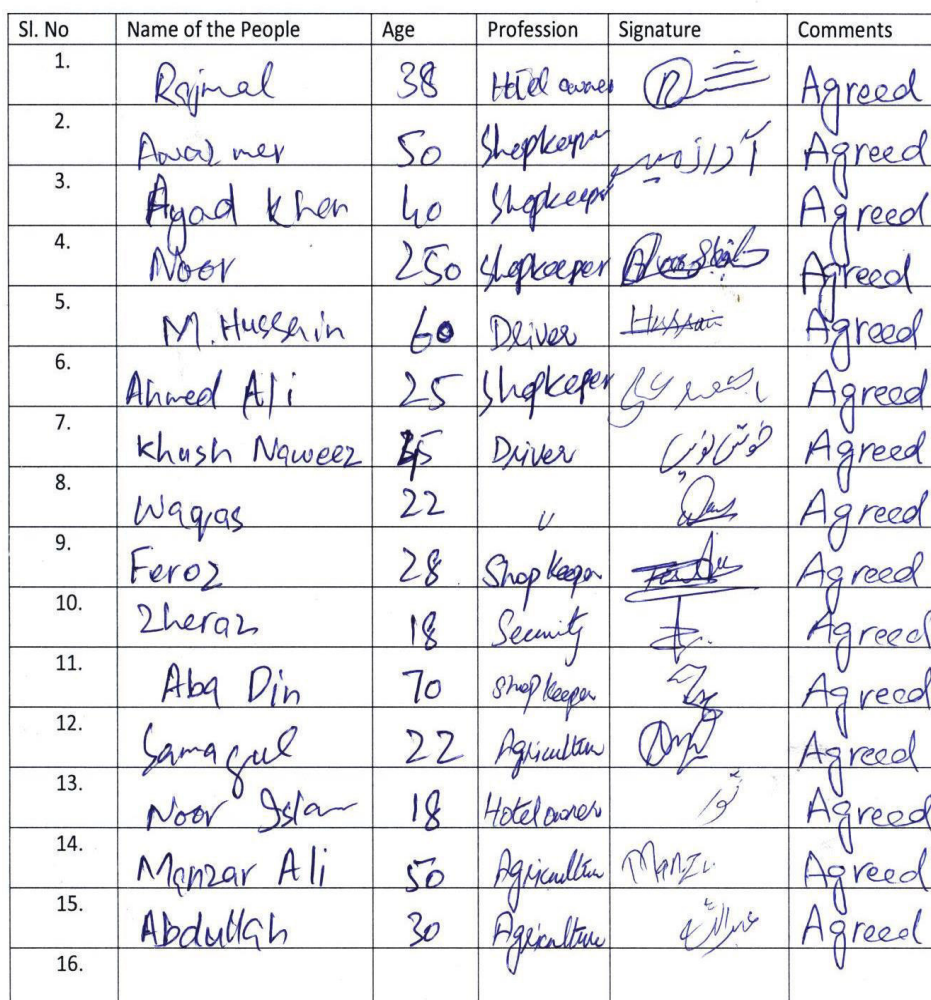 Sl. No Name of the People Age Profession Signature Comments
1. Rajmal 38 Hotel owner Agreed
2. 50 Shopkeeper Agreed
3. Ayad Khan 40 Shopkeeper Agreed
4. Noor 250 Shopkeeper Agreed
5. M. Hussain 60 Driver Hussain Agreed
6. Ahmed Ali 25 Shopkeper Agreed
7. Khush Naweez Driver خوش نویس Agreed
8. Waqas 22 " Agreed
9. Feroz 28 Shop keeper Agreed
10. Zheraz 18 Security Agreed
11. Aba Din 70 Shop keeper Agreed
12. Samagul 22 Agriculture Agreed
13. Noor Islam 18 Hotel owner نور Agreed
14. Manzar Ali 50 Agriculture Agreed
15. Abdullah 30 Agriculture عبداللہ Agreed
16.